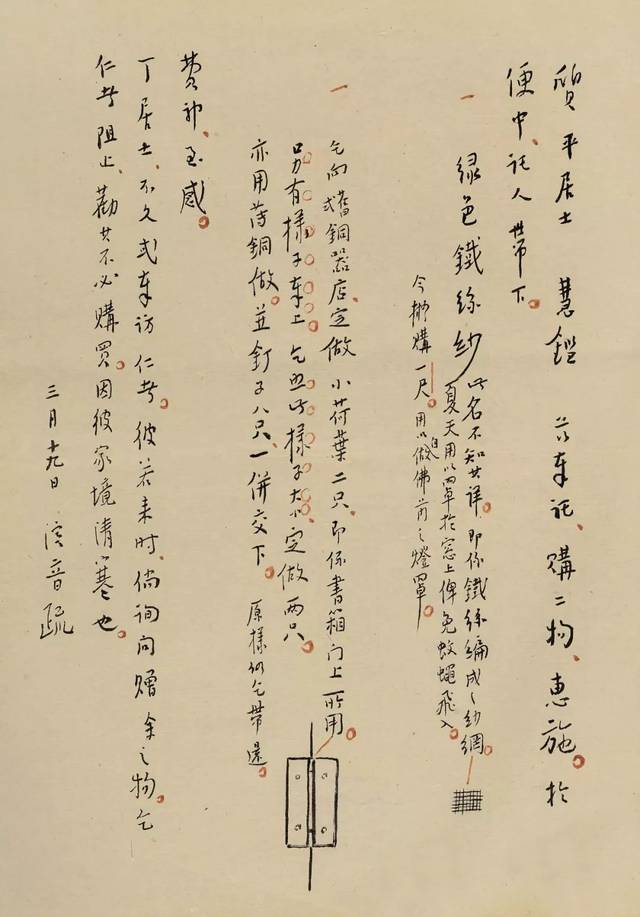 質平居士 慧鑑 茲奉託、購二物、惠施。於
便中、託人帶下。
一 綠色鐵絲紗 此名不知其詳、即係鐵絲編成之紗網。
夏天用以罩於窓上俾免蚊蠅飛入。
今擬購一尺。用以自做佛前之燈罩。
一 乞向舊式銅器店、定做小荷葉二只、即係書箱门上所用。
另有樣子奉上。乞照此樣子大小定做兩只。
亦用薄銅做。並釘子八只、一併交下。 原樣仍乞帶還。
費神、至感。
丁居士、不久或奉访仁者。彼若来时、倘詢问贈余之物。乞
仁者阻止、勸其不必購買。因彼家境清寒也。
三月十九日 演音疏